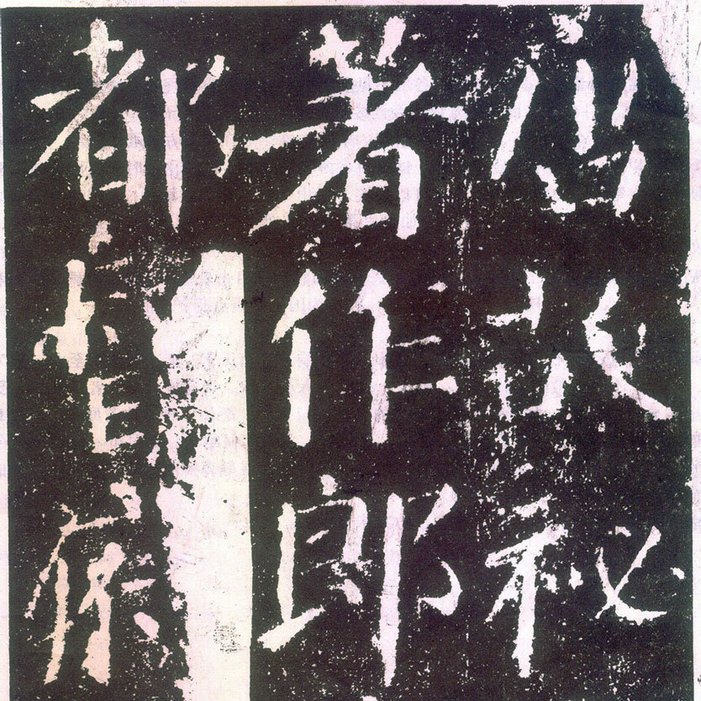 唐故秘
著作郎
都督府